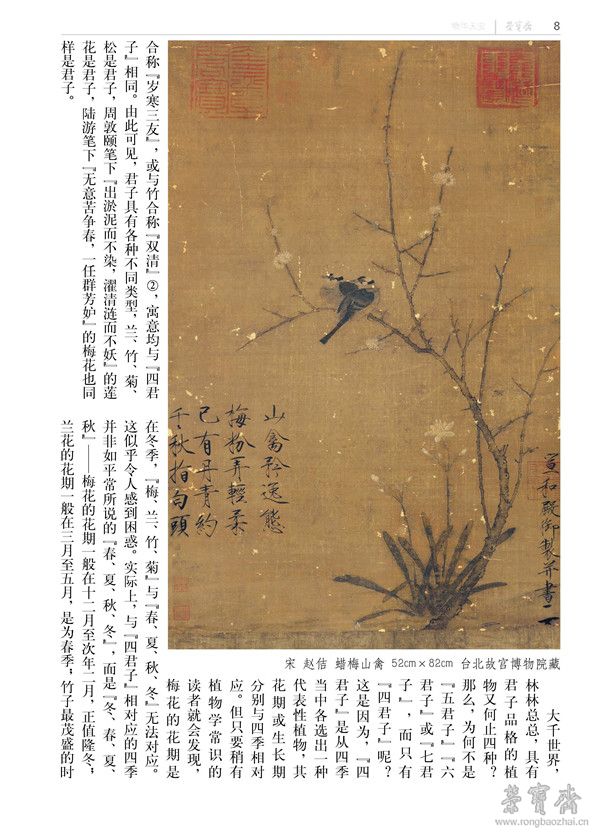 物华天宝
榮寶齋
8
合称『岁寒三友』，或与竹合称『双清』②，寓意均与『四君
子』相同。由此可见，君子具有各种不同类型，兰、竹、菊、
松是君子，周敦颐笔下『出淤泥而不染，濯清涟而不妖』的莲
花是君子，陆游笔下『无意苦争春，一任群芳妒』的梅花也同
样是君子。
宣和殿御製并書
山禽矜逸態
梅粉弄輕柔
已有丹青約
千秋指白頭
宋 赵佶 蜡梅山禽 52cm×82cm 台北故宫博物院藏
大千世界，
林林总总，具有
君子品格的植
物又何止四种？
那么，为何不是
『五君子』『六
君子』或『七君
子』，而只有
『四君子』呢？
这是因为，『四
君子』是从四季
当中各选出一种
代表性植物，其
花期或生长期
分别与四季相对
应。但只要稍有
植物学常识的
读者就会发现，
梅花的花期是
在冬季，『梅、兰、竹、菊』与『春、夏、秋、冬』无法对应。
这似乎令人感到困惑。实际上，与『四君子』相对应的四季
并非如平常所说的『春、夏、秋、冬』，而是『冬、春、夏、
秋』——梅花的花期一般在十二月至次年二月，正值隆冬；
兰花的花期一般在三月至五月，是为春季；竹子最茂盛的时
榮寶齋
www.rongbaozhai.cn